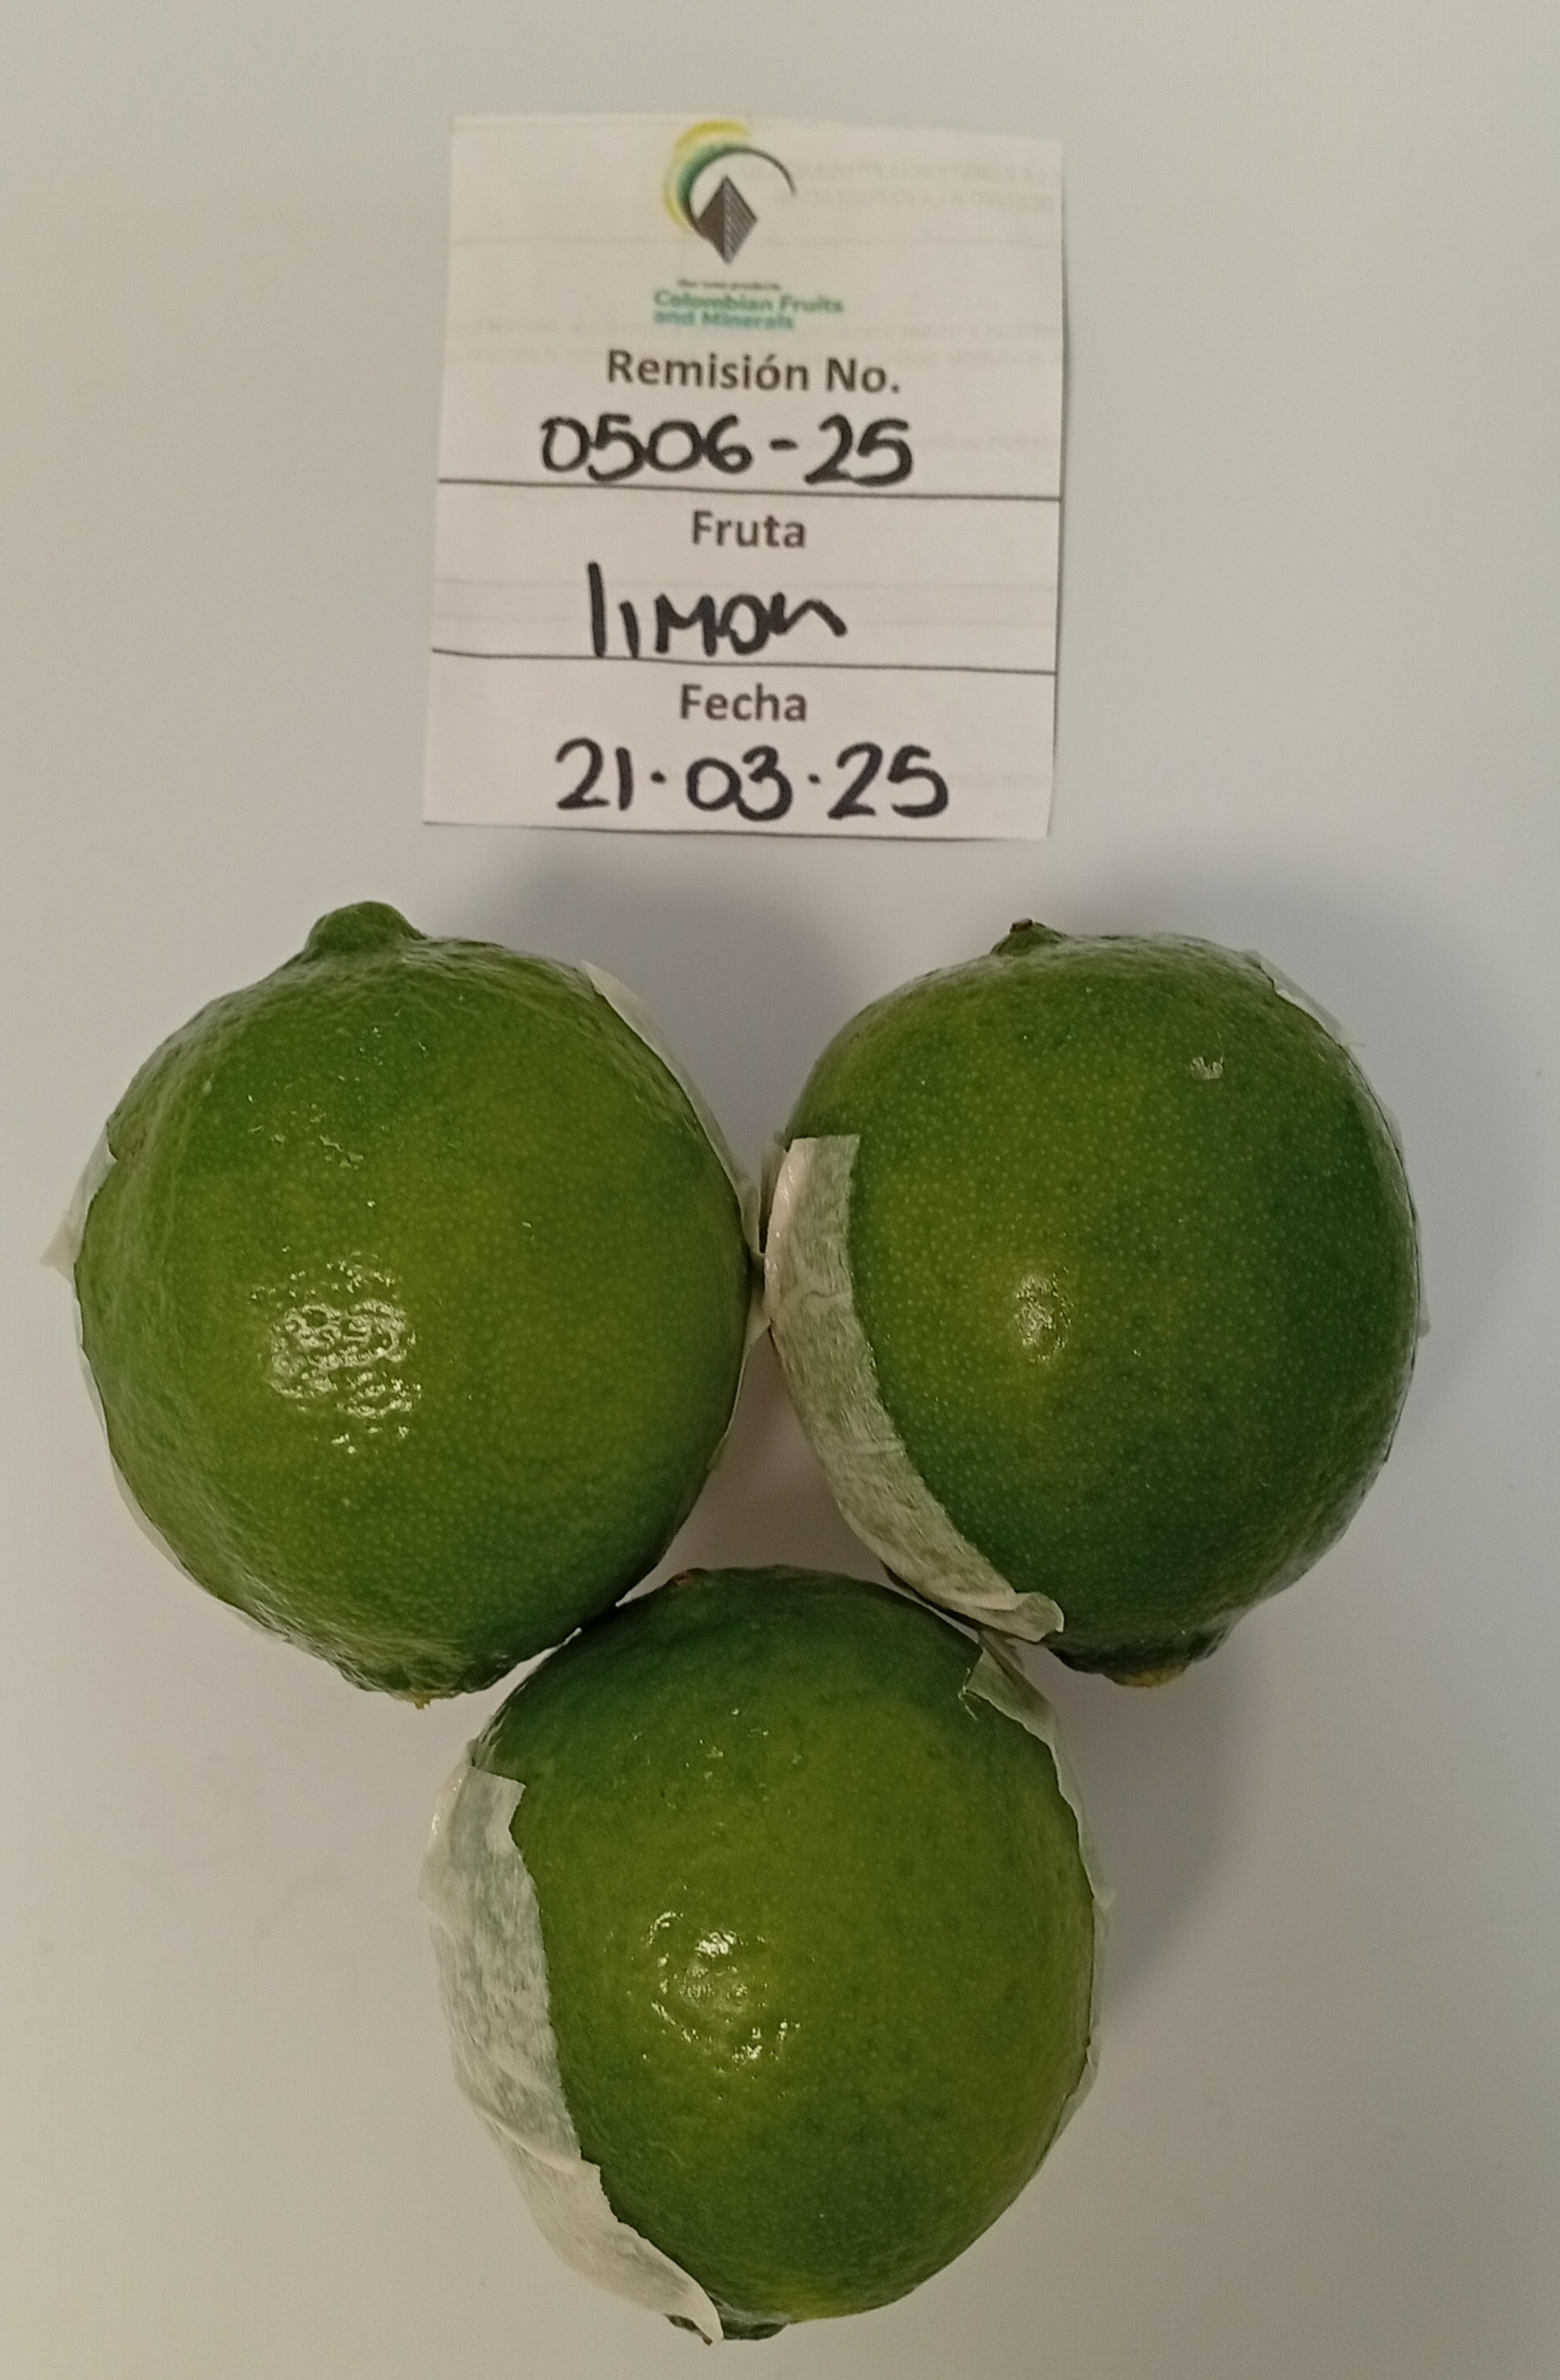 Our best products
Colombian Fruits
and Minerals
Remisión No.
0506-25
Fruta
limon
Fecha
21·03·25